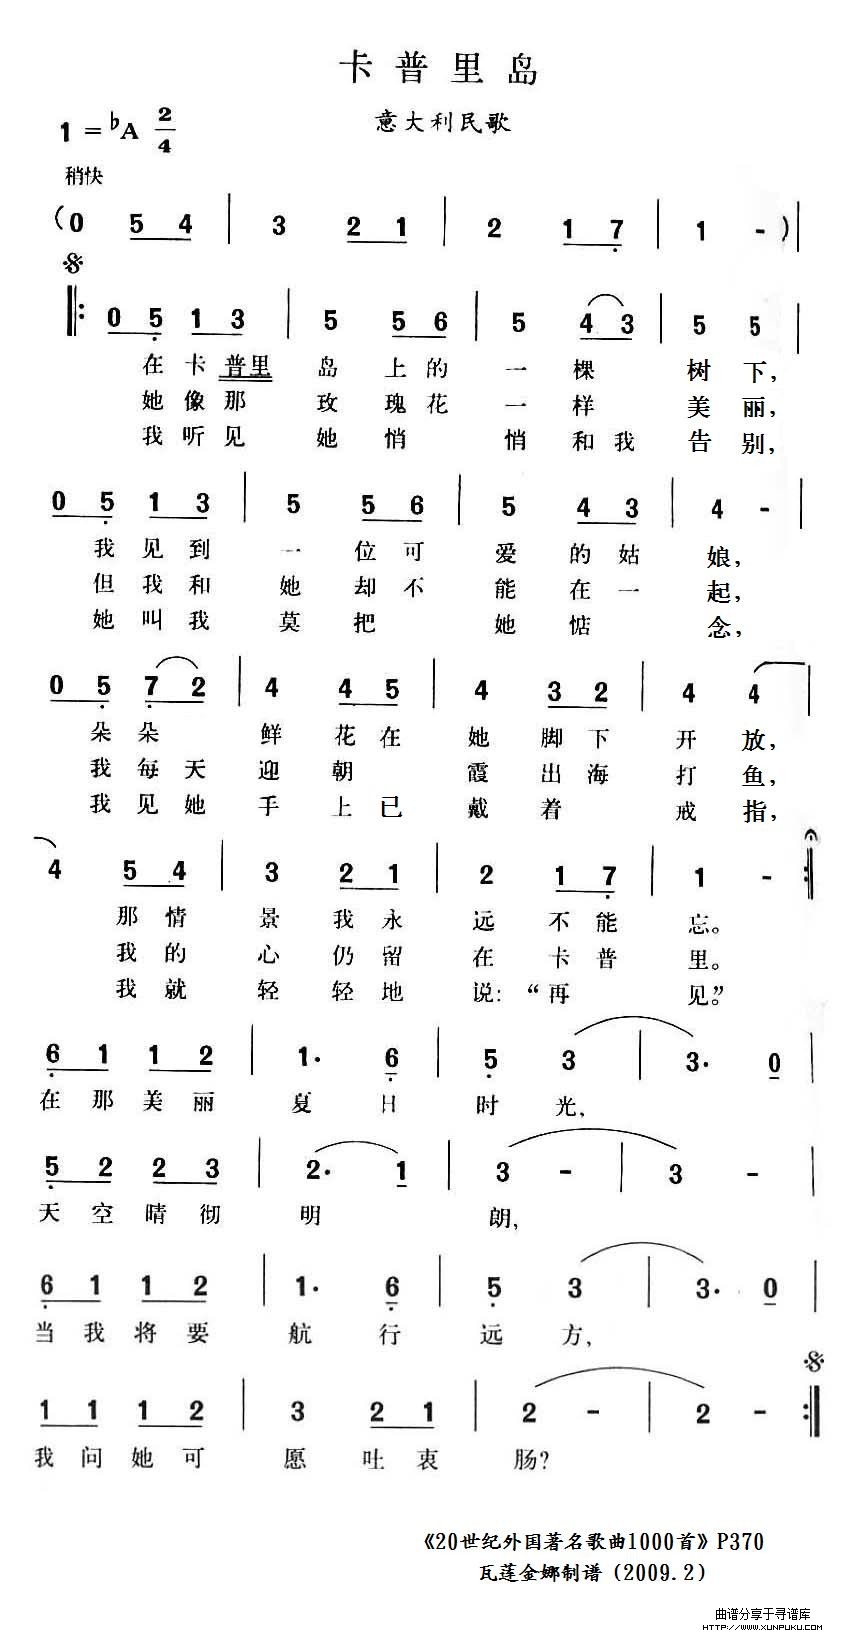 卡普里岛
1 = ♭A 2/4
意大利民歌
稍快
(0 5 4 | 3 2 1 | 2 1 7 | 1 - )|
𝄋
‖: 0 5 1 3 | 5 5 6 | 5 4 3 | 5 5 |
在卡普里岛上的一棵树下,
她像那玫瑰花一样美丽,
我听见她悄悄和我告别,
0 5 1 3 | 5 5 6 | 5 4 3 | 4 - |
我见到一位可爱的姑娘,
但我和她却不能在一起,
她叫我莫把她惦念,
0 5 7 2 | 4 4 5 | 4 3 2 | 4 4 |
朵朵鲜花在她脚下开放,
我每天迎朝霞出海打鱼,
我见她手上已戴着戒指,
4 5 4 | 3 2 1 | 2 1 7 | 1 - :‖
那情景我永远不能忘。
我的心仍留在卡普里。
我就轻轻地说:“再见。”
6 1 1 2 | 1· 6 | 5 3 | 3· 0 |
在那美丽夏日时光,
5 2 2 3 | 2· 1 | 3 - | 3 - |
天空晴彻明朗,
6 1 1 2 | 1· 6 | 5 3 | 3· 0 |
当我将要航行远方,
𝄋
1 1 1 2 | 3 2 1 | 2 - | 2 - :‖
我问她可愿吐衷肠?
《20世纪外国著名歌曲1000首》P370
瓦莲金娜制谱(2009.2)
曲谱分享于寻谱库
HTTP://WWW.XUNPUKU.COM